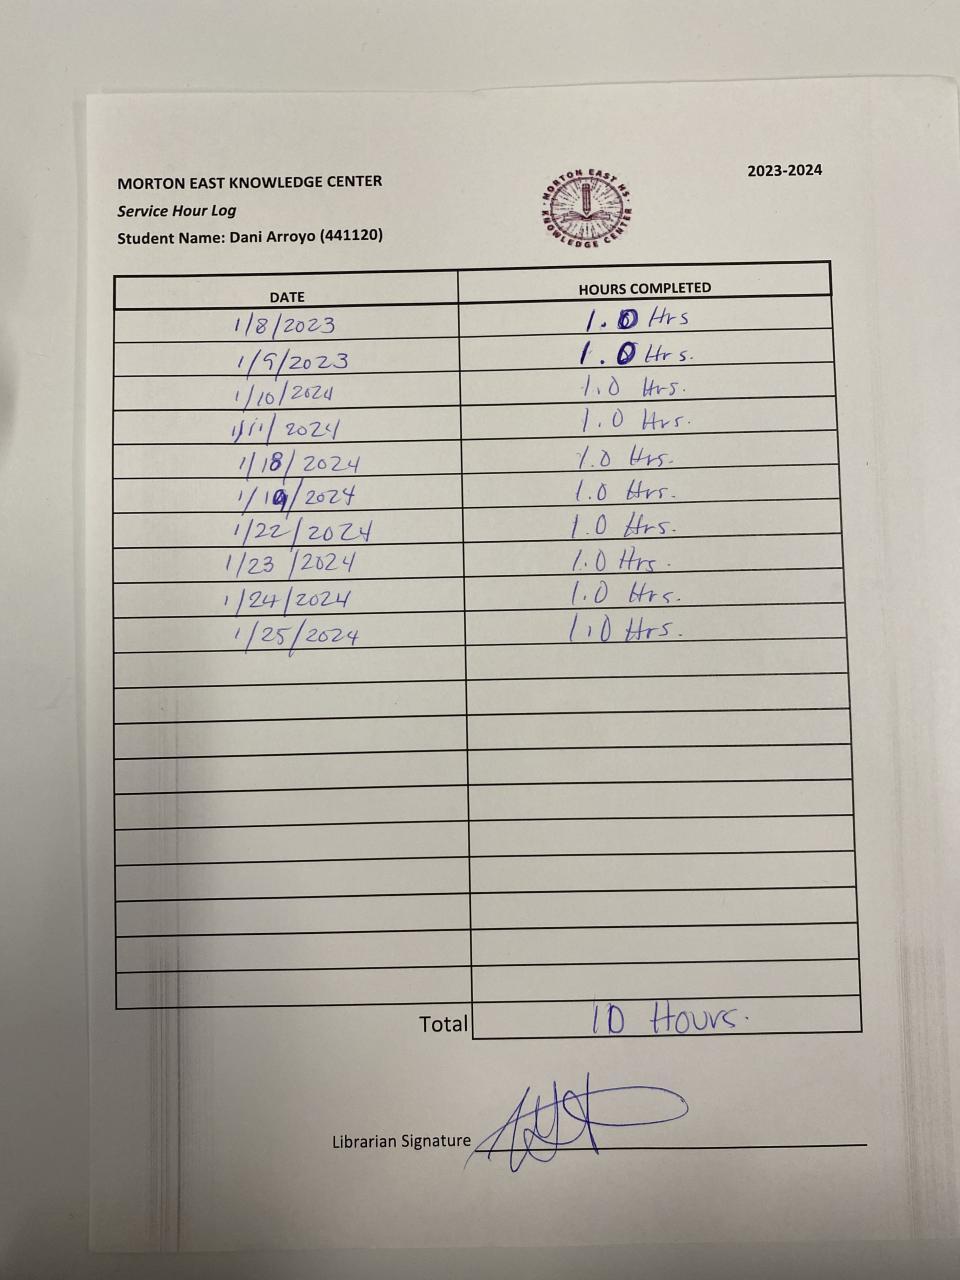 MORTON EAST KNOWLEDGE CENTER
Service Hour Log
Student Name: Dani Arroyo (441120)
MORTON EAST HS.
KNOWLEDGE CENTER
2023-2024
DATE HOURS COMPLETED
1/8/2023 1.0 Hrs
1/9/2023 1.0 Hrs.
1/10/2024 1.0 Hrs.
1/11/2024 1.0 Hrs.
1/18/2024 1.0 Hrs.
1/19/2024 1.0 Hrs.
1/22/2024 1.0 Hrs.
1/23/2024 1.0 Hrs.
1/24/2024 1.0 Hrs.
1/25/2024 1.0 Hrs.
Total 10 Hours.
Librarian Signature